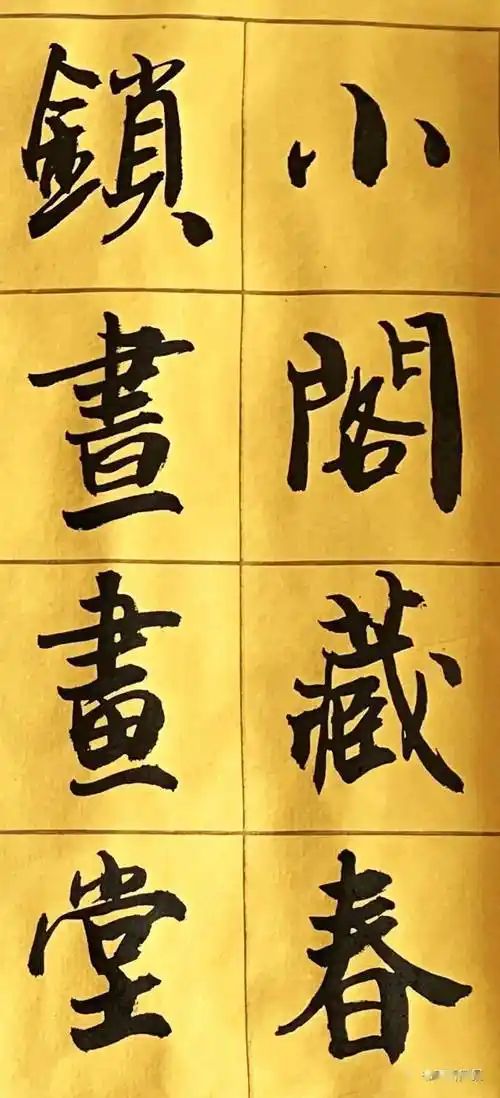 小閣藏春
鎖晝畫堂